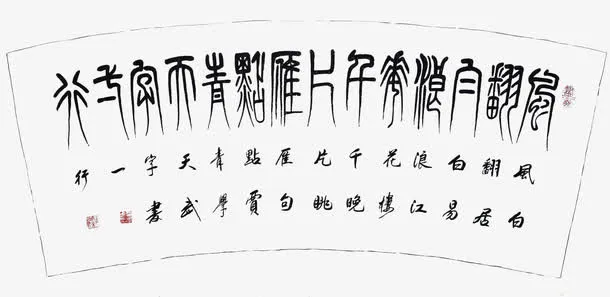 風翻白浪花千片雁點青天字一行
風翻白浪花千片雁點青天字一行
白居易江樓晚眺句賈學武書